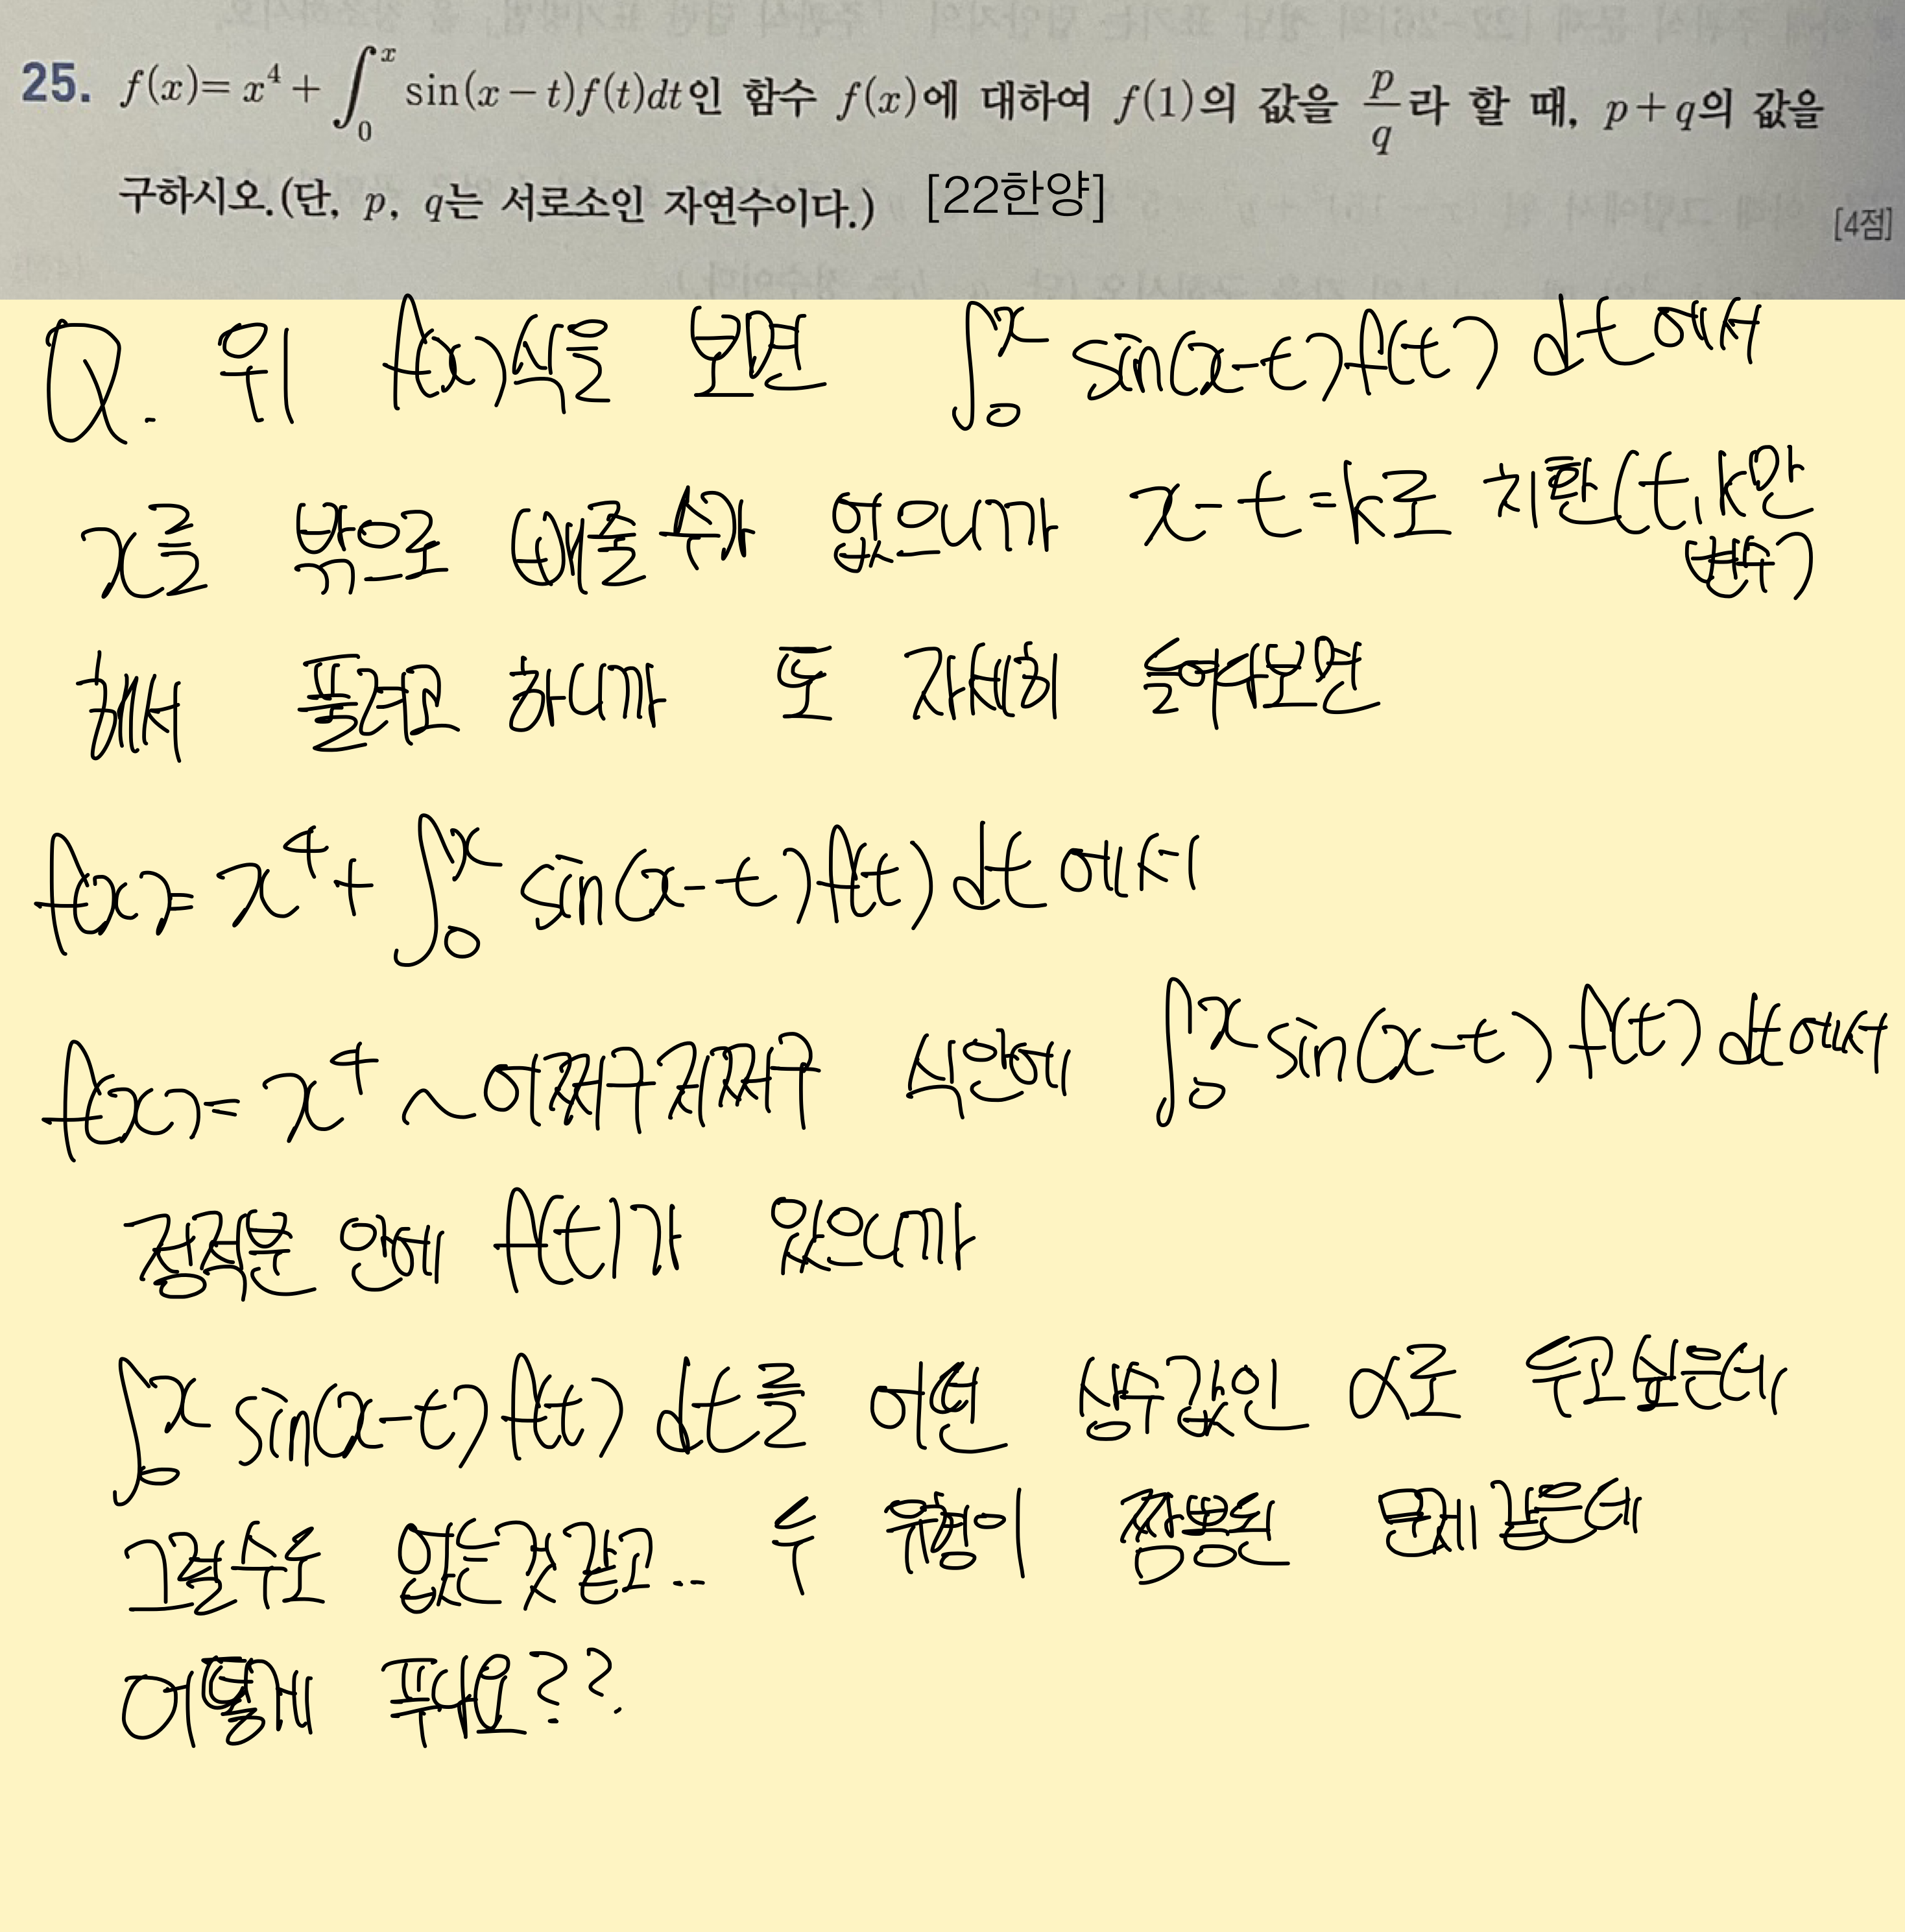 25. f(x)= x⁴ + ∫₀ˣ sin(x-t)f(t)dt인 함수 f(x)에 대하여 f(1)의 값을 p/q라 할 때, p+q의 값을
구하시오.(단, p, q는 서로소인 자연수이다.) [22한양]
[4점]
Q. 위 f(x)식을 보면 ∫₀ˣ sin(x-t)f(t) dt에서
x를 밖으로 빼줄 수가 없으니까 x-t=k로 치환(t, k만
변수)
해서 풀려고 하니까 또 자세히 들여다보면
f(x)= x⁴+ ∫₀ˣ sin(x-t)f(t) dt에서
f(x)= x⁴ ~어쩌구저쩌구 식안에 ∫₀ˣ sin(x-t) f(t) dt에서
정적분 안에 f(t)가 있으니까
∫₀ˣ sin(x-t)f(t) dt를 어떤 상수값인 α로 두고싶은데
그럴수도 없는것같고.. 두 유형이 짬뽕된 문제같은데
어떻게 푸나요??